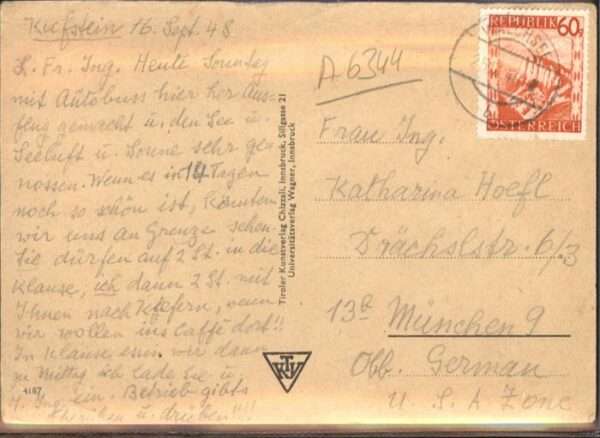 Kufstein 16. Sept. 48
L. Fr. Ing. Heute Sonntag
mit Autobuss hier her Aus-
flug gemacht u. den See u.
Seeluft u. Sonne sehr ge-
nossen. Wenn es in 14 Tagen
noch so schön ist, könnten
wir uns an Grenze sehen.
Sie dürfen auf 2 St. in die
Klause, ich dann 2 St. mit
Ihnen nach Kfefern, wenn
wir wollen ins Caffé dort!!
In Klause essen wir dann
zu Mittag ich lade Sie u.
H. Ing. ein. Betrieb gibts
u. drüben!!!!
4167
Tiroler Kunstverlag Chizzali, Innsbruck, Sillgasse 21
Universitätsverlag Wagner, Innsbruck
TKV
A 6344
REPUBLIK 60g
ÖSTERREICH
b
Frau Ing.
Katharina Hoefl
Drächslstr. 6/3
13a München 9
Obb. German
U. S. A Zone